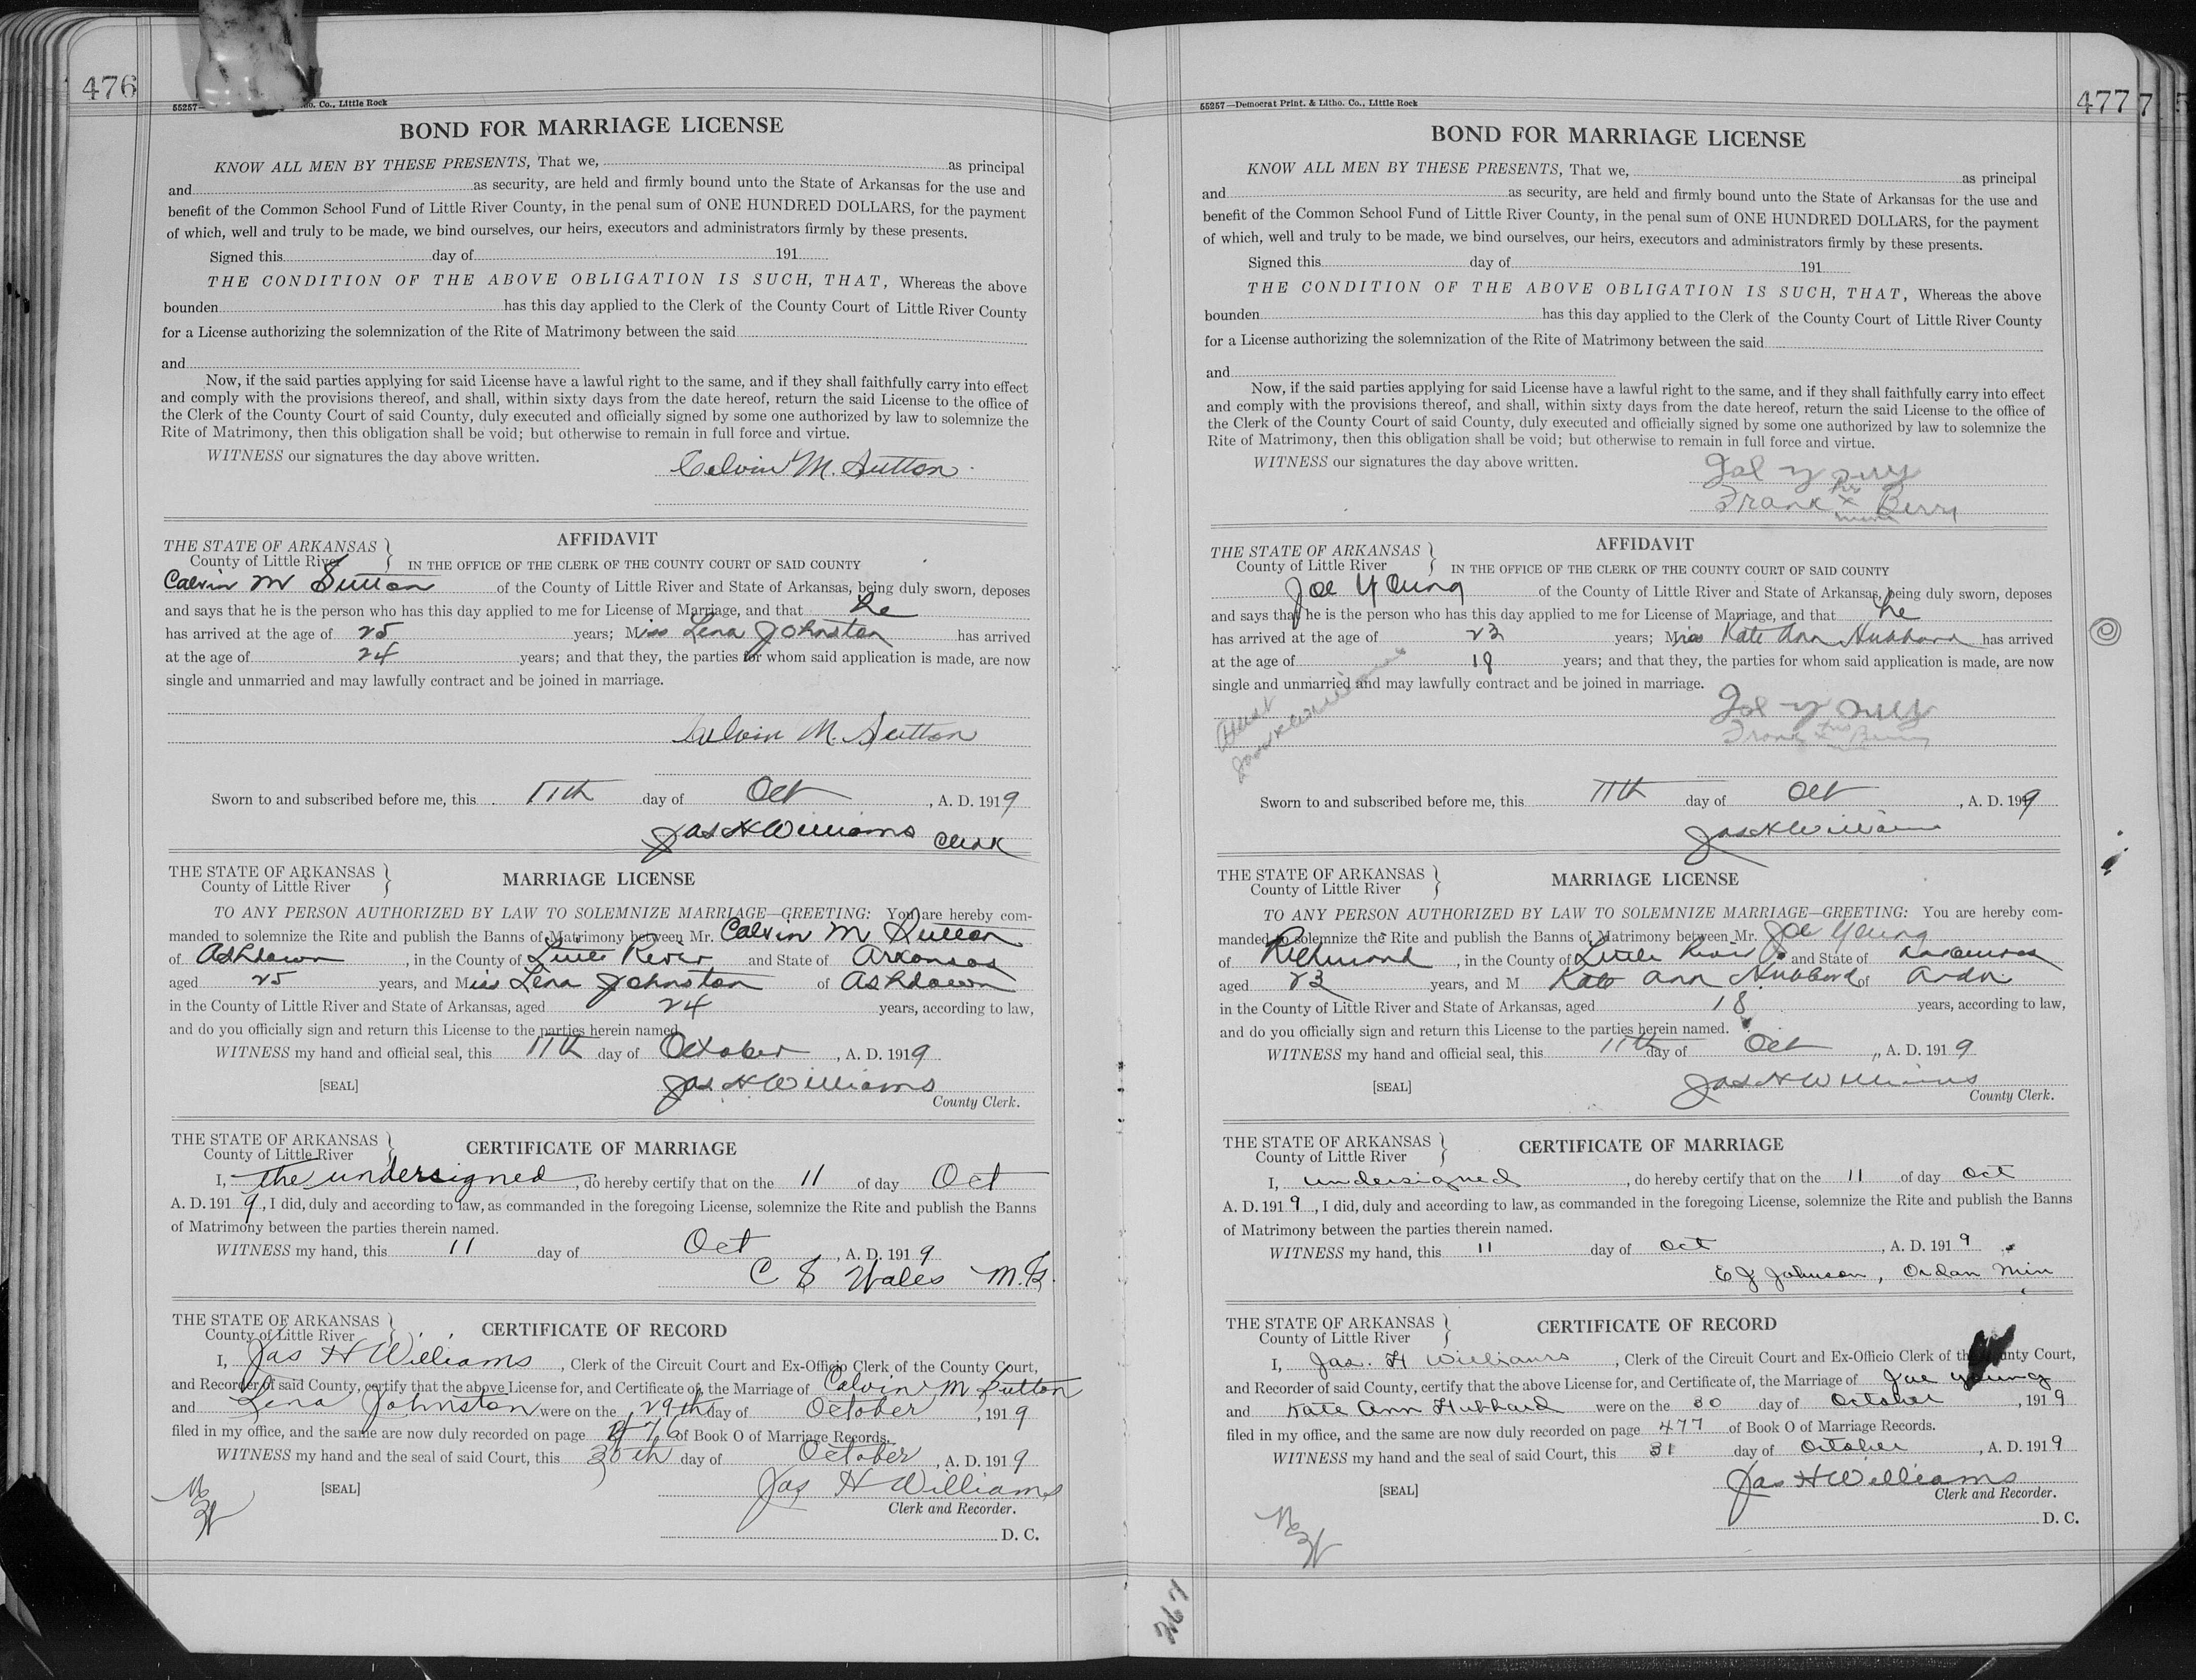 476
55257— ho. Co., Little Rock
BOND FOR MARRIAGE LICENSE
KNOW ALL MEN BY THESE PRESENTS, That we, as principal
and as security, are held and firmly bound unto the State of Arkansas for the use and
benefit of the Common School Fund of Little River County, in the penal sum of ONE HUNDRED DOLLARS, for the payment
of which, well and truly to be made, we bind ourselves, our heirs, executors and administrators firmly by these presents.
Signed this day of 191
THE CONDITION OF THE ABOVE OBLIGATION IS SUCH, THAT, Whereas the above
bounden has this day applied to the Clerk of the County Court of Little River County
for a License authorizing the solemnization of the Rite of Matrimony between the said
and
Now, if the said parties applying for said License have a lawful right to the same, and if they shall faithfully carry into effect
and comply with the provisions thereof, and shall, within sixty days from the date hereof, return the said License to the office of
the Clerk of the County Court of said County, duly executed and officially signed by some one authorized by law to solemnize the
Rite of Matrimony, then this obligation shall be void; but otherwise to remain in full force and virtue.
WITNESS our signatures the day above written.
Calvin M. Sutton
AFFIDAVIT
THE STATE OF ARKANSAS
County of Little River
IN THE OFFICE OF THE CLERK OF THE COUNTY COURT OF SAID COUNTY
Calvin M Sutton of the County of Little River and State of Arkansas, being duly sworn, deposes
and says that he is the person who has this day applied to me for License of Marriage, and that he
has arrived at the age of 25 years; Miss Lena Johnston has arrived
at the age of 24 years; and that they, the parties for whom said application is made, are now
single and unmarried and may lawfully contract and be joined in marriage.
Calvin M. Sutton
Sworn to and subscribed before me, this 11th day of Oct, A. D. 1919
Jas H Williams Clerk
THE STATE OF ARKANSAS
County of Little River
MARRIAGE LICENSE
TO ANY PERSON AUTHORIZED BY LAW TO SOLEMNIZE MARRIAGE—GREETING: You are hereby com-
manded to solemnize the Rite and publish the Banns of Matrimony between Mr. Calvin M Sutton
of Ashdown, in the County of Little River and State of Arkansas
aged 25 years, and Miss Lena Johnston of Ashdown
in the County of Little River and State of Arkansas, aged 24 years, according to law,
and do you officially sign and return this License to the parties herein named.
WITNESS my hand and official seal, this 11th day of October, A. D. 1919
[SEAL] Jas H Williams
County Clerk.
THE STATE OF ARKANSAS
County of Little River
CERTIFICATE OF MARRIAGE
I, the undersigned, do hereby certify that on the 11 of day Oct
A. D. 1919, I did, duly and according to law, as commanded in the foregoing License, solemnize the Rite and publish the Banns
of Matrimony between the parties therein named.
WITNESS my hand, this 11 day of Oct, A. D. 1919
C S Wales M.G.
THE STATE OF ARKANSAS
County of Little River
CERTIFICATE OF RECORD
I, Jas H Williams, Clerk of the Circuit Court and Ex-Officio Clerk of the County Court,
and Recorder of said County, certify that the above License for, and Certificate of, the Marriage of Calvin M Sutton
and Lena Johnston were on the 29th day of October, 1919
filed in my office, and the same are now duly recorded on page 476 of Book O of Marriage Records.
WITNESS my hand and the seal of said Court, this 30th day of October, A. D. 1919
[SEAL] Jas H Williams
Clerk and Recorder.
D. C.
477
55257—Democrat Print. & Litho. Co., Little Rock
BOND FOR MARRIAGE LICENSE
KNOW ALL MEN BY THESE PRESENTS, That we, as principal
and as security, are held and firmly bound unto the State of Arkansas for the use and
benefit of the Common School Fund of Little River County, in the penal sum of ONE HUNDRED DOLLARS, for the payment
of which, well and truly to be made, we bind ourselves, our heirs, executors and administrators firmly by these presents.
Signed this day of 191
THE CONDITION OF THE ABOVE OBLIGATION IS SUCH, THAT, Whereas the above
bounden has this day applied to the Clerk of the County Court of Little River County
for a License authorizing the solemnization of the Rite of Matrimony between the said
and
Now, if the said parties applying for said License have a lawful right to the same, and if they shall faithfully carry into effect
and comply with the provisions thereof, and shall, within sixty days from the date hereof, return the said License to the office of
the Clerk of the County Court of said County, duly executed and officially signed by some one authorized by law to solemnize the
Rite of Matrimony, then this obligation shall be void; but otherwise to remain in full force and virtue.
WITNESS our signatures the day above written.
Frank his x mark Berry
AFFIDAVIT
THE STATE OF ARKANSAS
County of Little River
IN THE OFFICE OF THE CLERK OF THE COUNTY COURT OF SAID COUNTY
Joe Young of the County of Little River and State of Arkansas, being duly sworn, deposes
and says that he is the person who has this day applied to me for License of Marriage, and that he
has arrived at the age of 23 years; Miss Kate Ann Hubbard has arrived
at the age of 18 years; and that they, the parties for whom said application is made, are now
single and unmarried and may lawfully contract and be joined in marriage.
Attest
Jas H Williams
Frank his x Berry
Sworn to and subscribed before me, this 11th day of Oct, A. D. 1919
Jas H Williams
THE STATE OF ARKANSAS
County of Little River
MARRIAGE LICENSE
TO ANY PERSON AUTHORIZED BY LAW TO SOLEMNIZE MARRIAGE—GREETING: You are hereby com-
manded to solemnize the Rite and publish the Banns of Matrimony between Mr. Joe Young
of Richmond, in the County of Little River and State of Arkansas
aged 23 years, and M Kate Ann Hubbard of Arden
in the County of Little River and State of Arkansas, aged 18 years, according to law,
and do you officially sign and return this License to the parties herein named.
WITNESS my hand and official seal, this 11th day of Oct, A. D. 1919
[SEAL] Jas H Williams
County Clerk.
THE STATE OF ARKANSAS
County of Little River
CERTIFICATE OF MARRIAGE
I, undersigned, do hereby certify that on the 11 of day Oct
A. D. 1919, I did, duly and according to law, as commanded in the foregoing License, solemnize the Rite and publish the Banns
of Matrimony between the parties therein named.
WITNESS my hand, this 11 day of Oct, A. D. 1919
E J Johnson, Ordan Min
THE STATE OF ARKANSAS
County of Little River
CERTIFICATE OF RECORD
I, Jas. H Williams, Clerk of the Circuit Court and Ex-Officio Clerk of the County Court,
and Recorder of said County, certify that the above License for, and Certificate of, the Marriage of Joe Young
and Kate Ann Hubbard were on the 30 day of October, 1919
filed in my office, and the same are now duly recorded on page 477 of Book O of Marriage Records.
WITNESS my hand and the seal of said Court, this 31 day of October, A. D. 1919
[SEAL] Jas H Williams
Clerk and Recorder.
D. C.